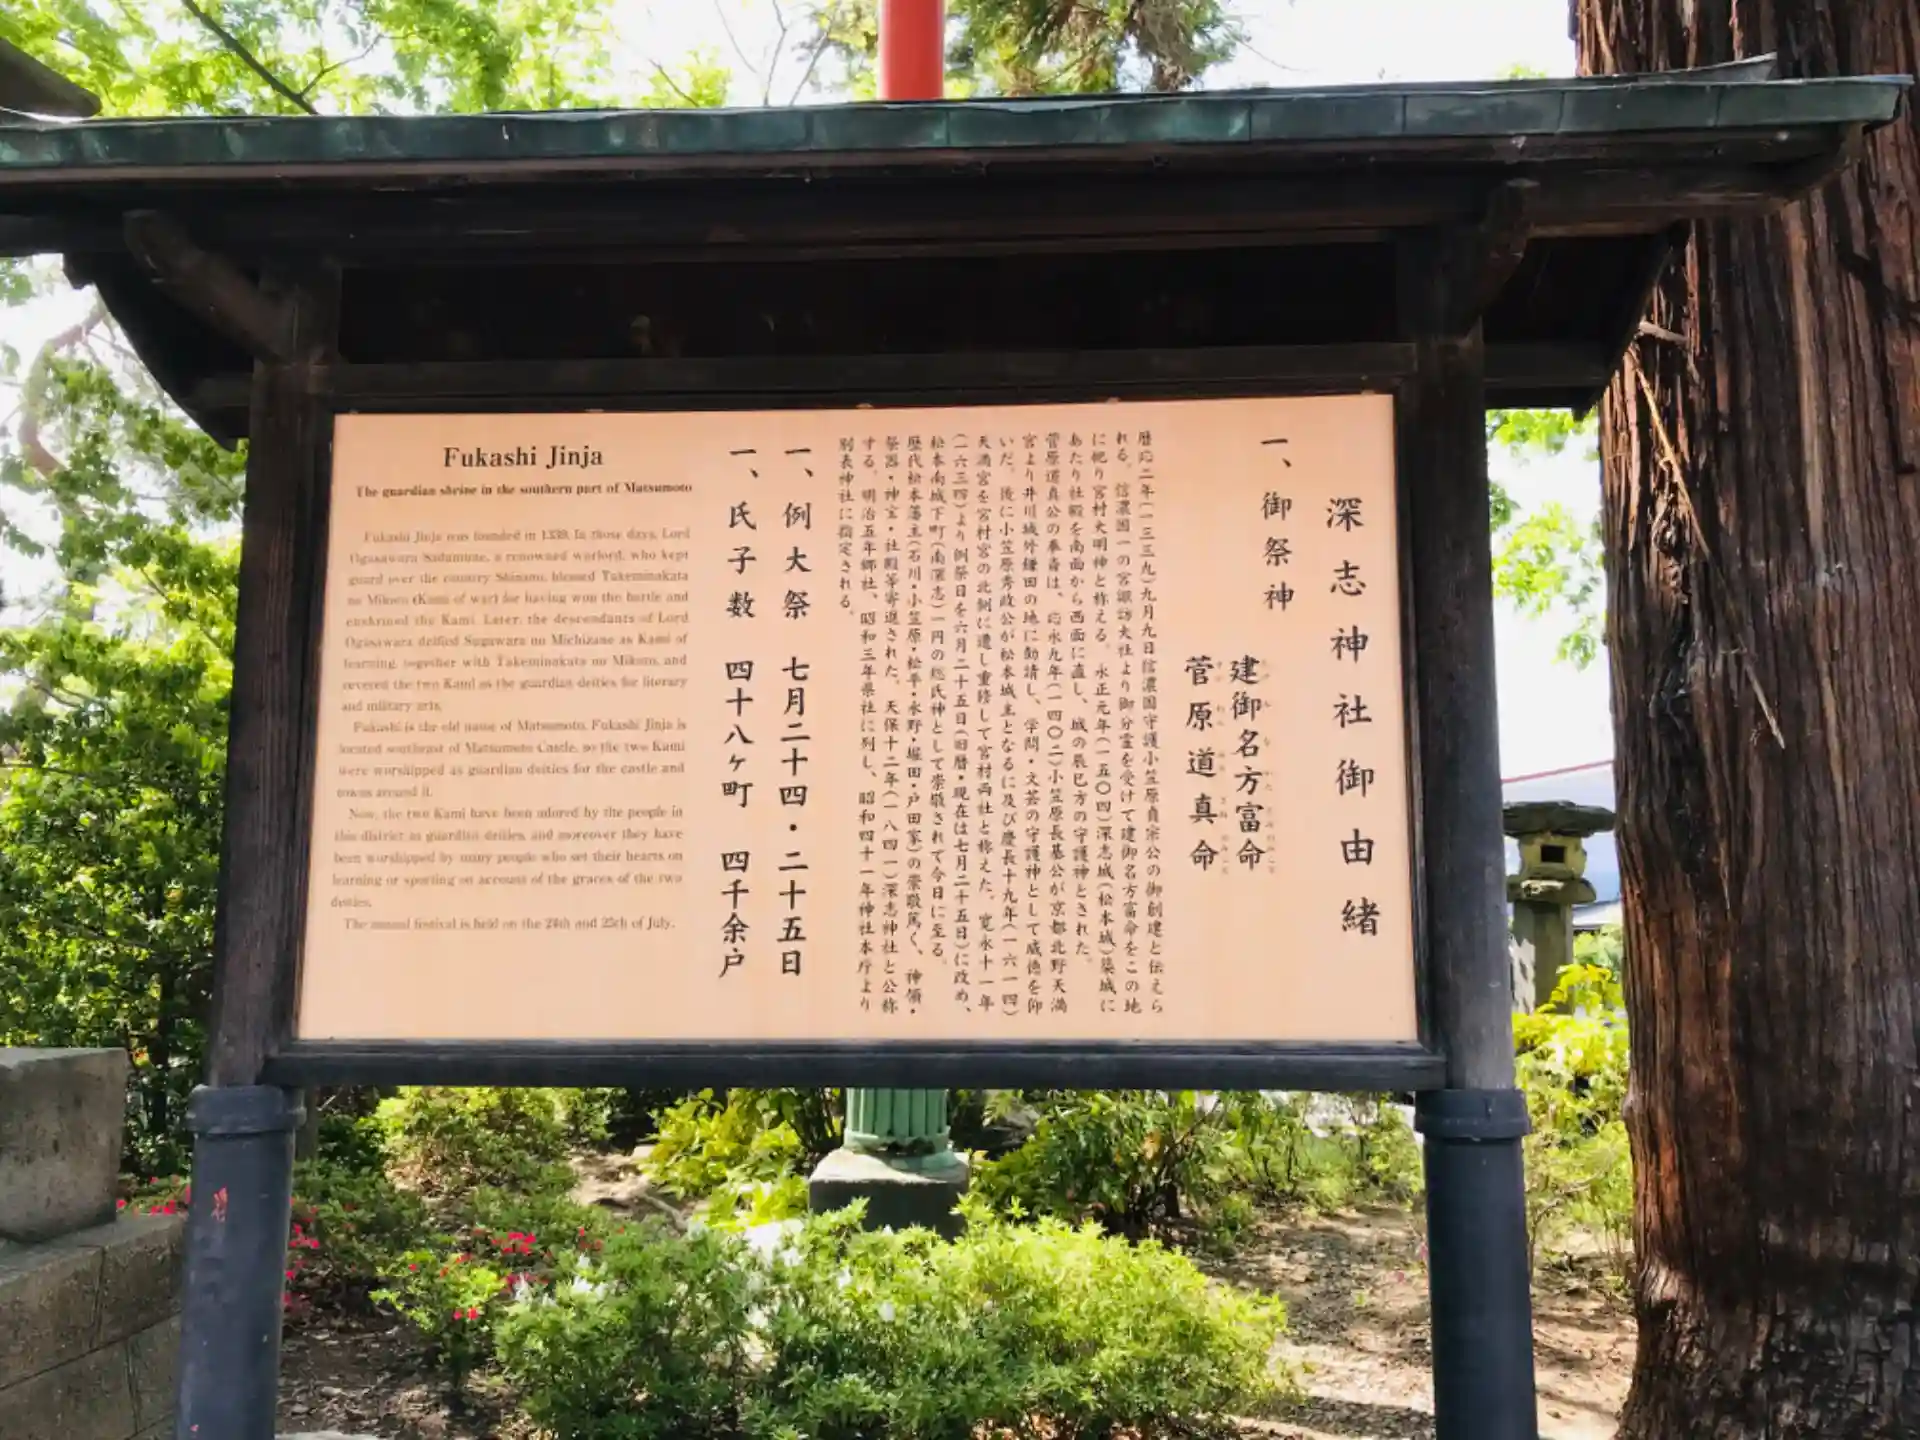 深志神社御由緒
一、御祭神
建御名方富命
菅原道真命
暦応二年(一三三九)九月九日信濃国守護小笠原貞宗公の御創建と伝えら
れる。信濃国一の宮諏訪大社より御分霊を受けて建御名方富命をこの地
に祀り宮村大明神と称える。永正元年(一五〇四)深志城(松本城)築城に
あたり社殿を南面から西面に直し、城の辰巳方の守護神とされた。
菅原道真公の奉斎は、応永九年(一四〇二)小笠原長基公が京都北野天満
宮より井川城外鎌田の地に勧請し、学問・文芸の守護神として威徳を仰
いだ。後に小笠原秀政公が松本城主となるに及び慶長十九年(一六一四)
天満宮を宮村宮の北側に遷し重修して宮村両社と称えた。寛永十一年
(一六三四)より例祭日を六月二十五日(旧暦・現在は七月二十五日)に改め、
松本南城下町(南深志)一円の総氏神として崇敬されて今日に至る。
歴代松本藩主(石川・小笠原・松平・水野・堀田・戸田家)の崇敬篤く、神領・
祭器・神宝・社殿等寄進された。天保十二年(一八四一)深志神社と公称
する。明治五年郷社、昭和三年県社に列し、昭和四十一年神社本庁より
別表神社に指定される。
一、例大祭 七月二十四・二十五日
一、氏子数 四十八ヶ町 四千余戸
Fukashi Jinja
The guardian shrine in the southern part of Matsumoto
Fukashi Jinja was founded in 1339. In those days, Lord
Ogasawara Sadamune, a renowned warlord, who kept
guard over the country Shinano, blessed Takeminakata
no Mikoto (Kami of war) for having won the battle and
enshrined the Kami. Later, the descendants of Lord
Ogasawara deified Sugawara no Michizane as Kami of
learning, together with Takeminakata no Mikoto, and
revered the two Kami as the guardian deities for literary
and military arts.
Fukashi is the old name of Matsumoto. Fukashi Jinja is
located southeast of Matsumoto Castle, so the two Kami
were worshipped as guardian deities for the castle and
towns around it.
Now, the two Kami have been adored by the people in
this district as guardian deities, and moreover they have
been worshipped by many people who set their hearts on
learning or sporting on account of the graces of the two
deities.
The annual festival is held on the 24th and 25th of July.